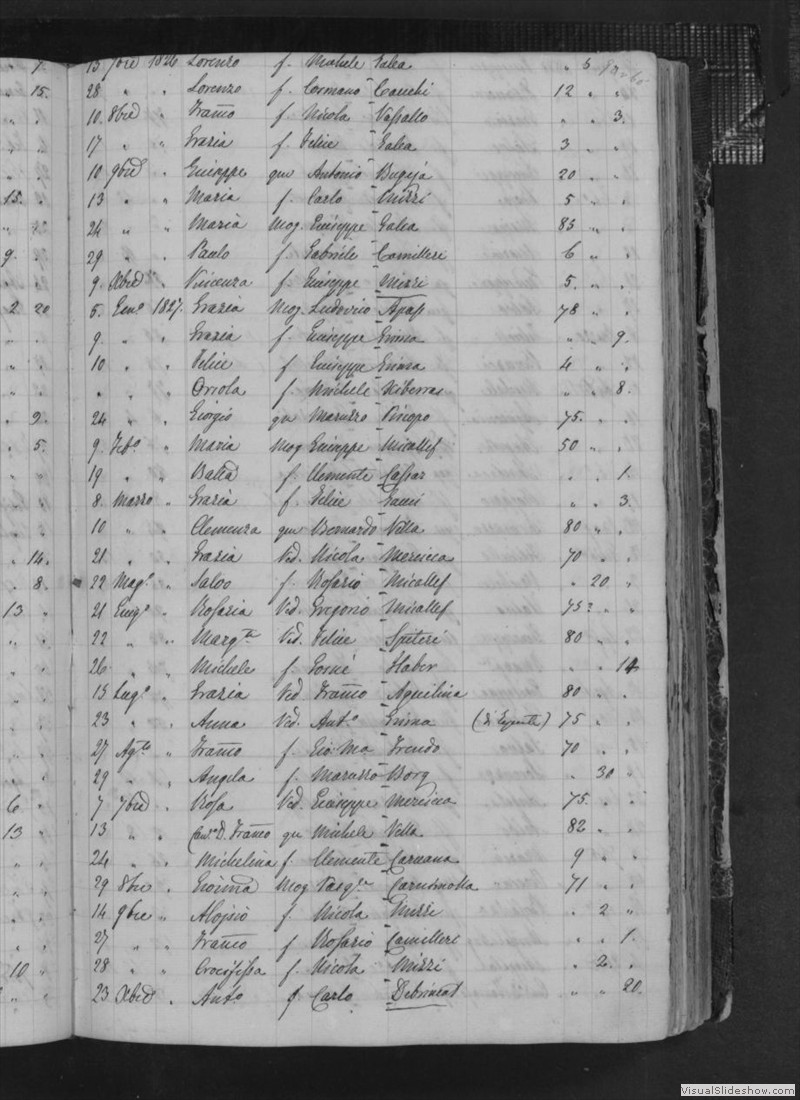 7. 15 7bre 1826 Lorenzo f. Michele Galea " 5
15. 28 " " Lorenzo f. Carmano Cauchi 12 " "
10. 8bre " Franco f. Nicola Vassallo " " 3.
17 " " Grazia f. Felice Galea 3 " "
10 9bre " Giuseppe qm Antonio Bugeja 20 " "
15. 13 " " Maria f. Carlo Mizzi 5 " "
24 " " Maria Mog. Giuseppe Galea 85 " "
9. 29 " " Paulo f. Gabriele Camilleri 6 " "
9. Xbre " Vincenza f. Giuseppe Mizzi 5. " "
2 20 5. Genn. 1827. Grazia Mog. Ludovico Apap 78 " "
9. " " Grazia f. Giuseppe Grima " " 9.
10 " " Felice f Giuseppe Grima 4 " "
" " " Oriola f. Michele Xiberras " " 8.
9. 24 " " Giorgio qm Maruzzo Piscopo 75. " "
5. 9. Feb. " Maria Mog Giuseppe Micallef 50 " "
19 " " f. Clemente Caspar " " 1.
8. Marzo " Grazia f. Felice " " 3.
10 " " Clemenza qm Bernardo Vella 80 " "
14. 21 " " Grazia Ved. Nicola Mercieca 70 " "
8. 22 Mag. " Salvo f. Rosario Micallef " 20 "
13 21 Giug. " Rosaria Ved Gregorio Micallef 75? " "
22 " " Margta Ved. Felice Spiteri 80 " "
26 " " Michele f. Haber " " 14
15 Lug. " Grazia Ved Franco Aquilina 80 " "
23 " " Anna Ved. Anto Grima 75 " "
27 Agto " Franco f. Gio: Ma Frendo 70 " "
29 " " Angela f. Maruzzo Borg " 30 "
6 7 7bre " Rosa Ved. Giuseppe Mercieca 75. " "
13 13 " " Can. D. Franco qm Michele Vella 82 " "
24 " " Michelina f. Clemente Caruana 9 " "
29 8bre " Gioanna Mog Pasqle 71 " "
14 9bre " Aloisio f. Nicola Mizzi " 2 "
27 " " Franco f Rosario Camilleri " " 1.
10 28 " " Crocifissa f. Nicola Mizzi " 2. "
23 Xbre " Anto f Carlo Debrincat " " 20.
VisualSlideshow.com